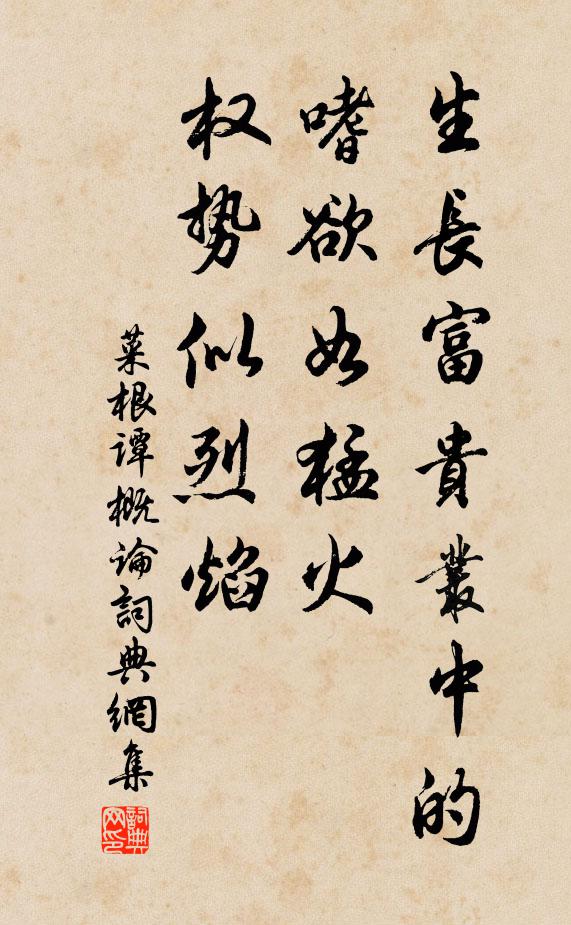 生長富貴叢中的
嗜欲如猛火
权势似烈焰
菜根谭概论詞典網集
詞典
网印